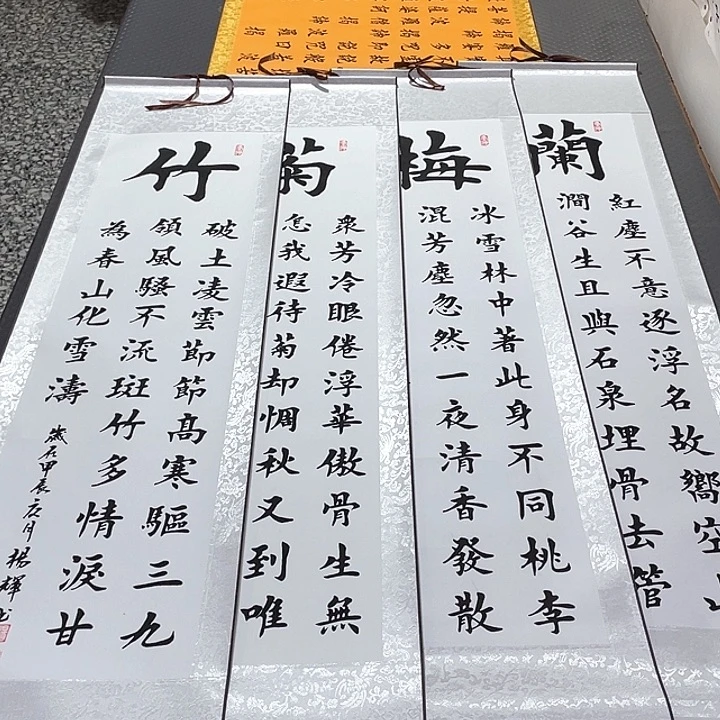 蘭
紅塵不意逐浮名故嚮空
澗谷生且與石泉埋骨去管
梅
冰雪林中著此身不同桃李
混芳塵忽然一夜清香發散
菊
衆芳冷眼倦浮華傲骨生無
怎我遐待菊却惆秋又到唯
竹
破土凌雲節節高寒驅三九
領風騷不流斑竹多情淚甘
為春山化雪濤
歲在甲辰 月 楊輝書